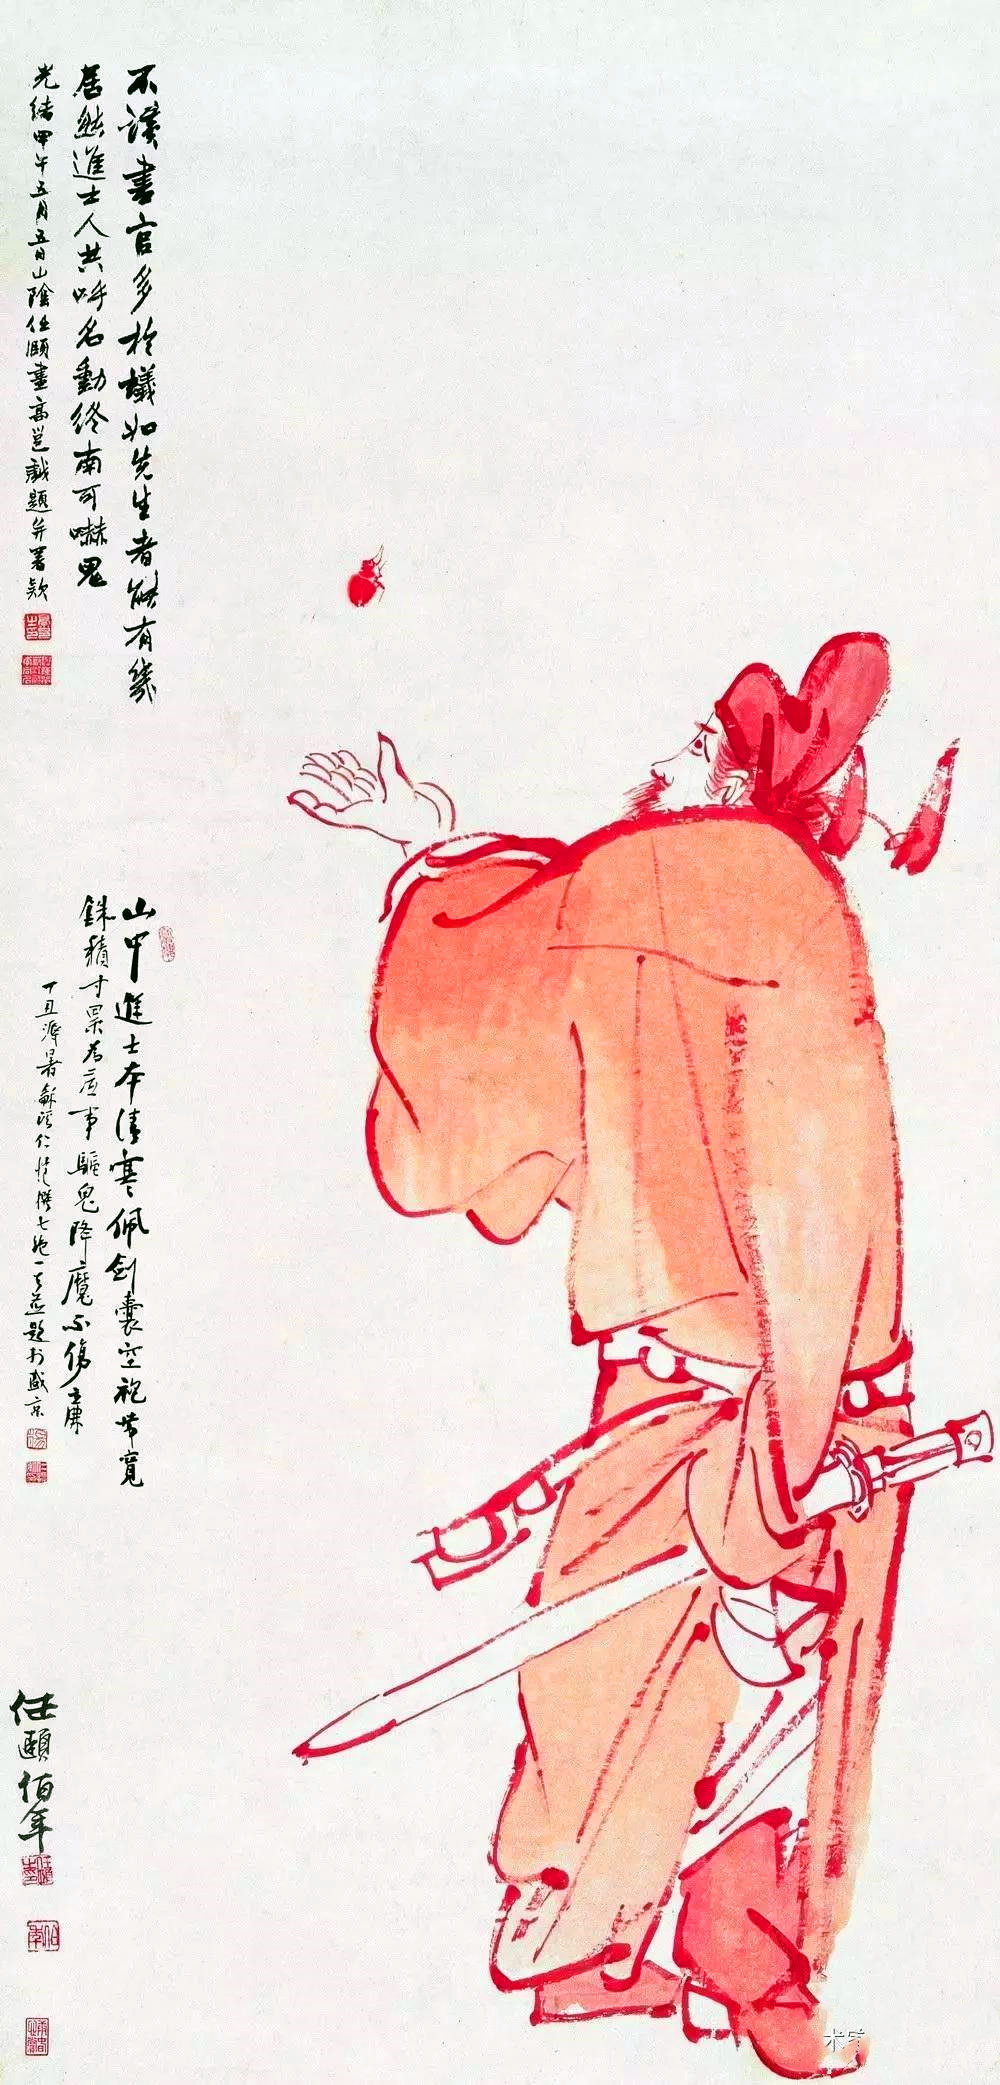 不讀書官多於蟻如先生者能有幾
居然進士人共呼名動終南可嚇鬼
光緒甲午五月五日山陰任頤畫高邕試題并署款
山中進士本清寒佩劍囊空袍帶寬
銖積寸累為底事驅鬼降魔不傷廉
丁丑溽暑 仁 七絕一 題於盛京
任頤伯年